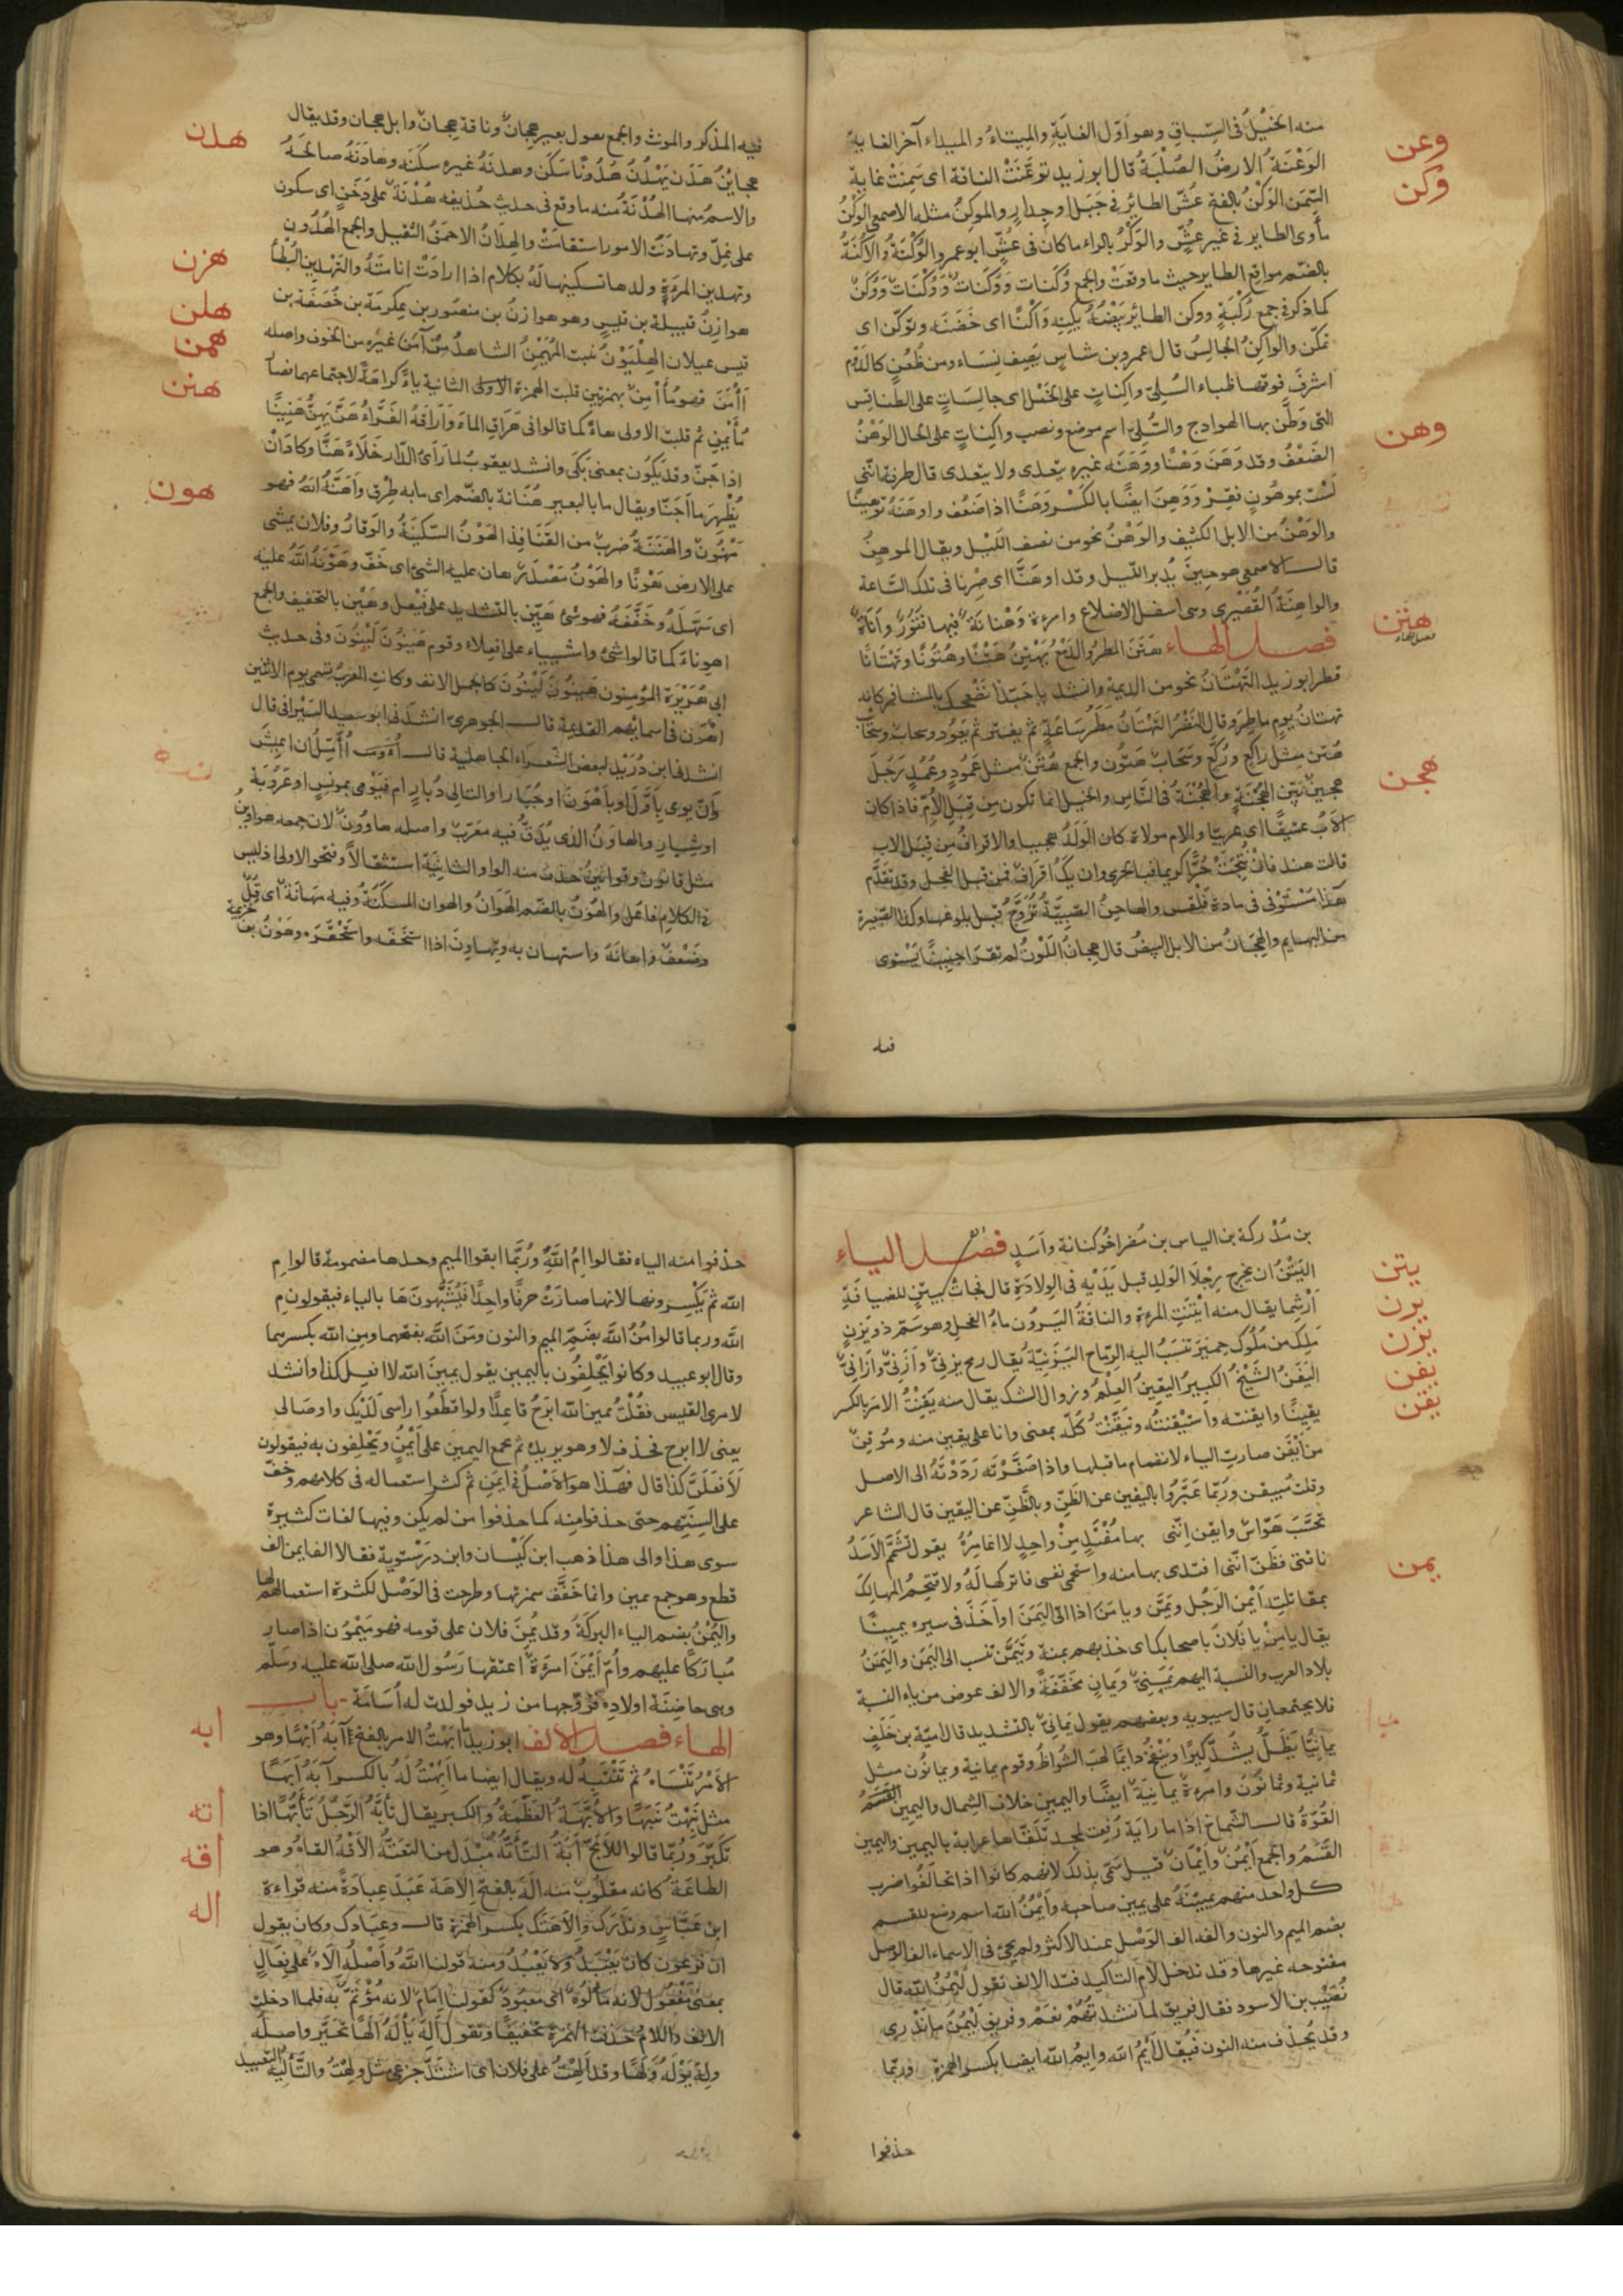 منه الخيل فى السباق وهو اول الغاية والميتاء والميداء آخر الغاية
وعن
الوعنة الارض الصلبة قال ابو زيد توعنت الناقة اى سمنت غاية
وكن
السمن الوكن بالفتح عش الطائر فى جبل او جدار والموكن مثله الاصمعى الوكن
مأوى الطاير فى غير عش والوكر بالراء ما كان فى عش ابو عمرو الوكنة والاكنة
بالضم مواقع الطاير حيث ما وقعت والجمع وكنات ووكنات ووكنات ووكن
كما ذكر فى جمع ركبة ووكن الطائر بيضه يكنه وكنا اى حضنه وتوكن اى
تمكن والواكن الجالس قال عمرو بن شاس يصف نساء ومن ظعن كالدوم
اشرف فوقها ظباء السلى واكنات على الخمل اى جالسات على الطنافس
التى وطن بها الهوادج والسلى اسم موضع ونصب واكنات على الحال الوهن
وهن
الضعف وقد وهن وهنا ووهنه غيره يتعدى ولا يتعدى قال طرفة اننى
لست بموهون فقر ووهن ايضا بالكسر وهنا اذا ضعف واوهنه توهينا
والوهن من الابل الكثيف والوهن نحو من نصف الليل ويقال الموهن
قال الاصمعى هو حين يدبر الليل وقد اوهنا اى صرنا فى تلك الساعة
والواهنة القصيرى وهى اسفل الاضلاع وامرءة وهنانة فيها فتور واناة
هتن
فصل الهاء هتن المطر والدمع يهتن هتنا وهتونا وتهتانا
قطر ابو زيد التهتان نحو من الديمة وانشد يا حبذا نضحك بالمشافر كانه
تهتان يوم ماطر وقال النضر التهتان مطر ساعة ثم يفتر ثم يعود وسحاب وسحاب
هتن مثل راكع وركع وسحاب هتون والجمع هتن مثل عمود وعمد رجل
هجن
هجين بين الهجنة والهجنة فى الناس والخيل انما تكون من قبل الام فاذا كان
الاب عتيقا اى عربيا والام مولاة كان الولد هجينا والاقراف من قبل الاب
قالت هند فان نتجت حرا كريما فبالحرى وان يك اقراف فمن قبل الفحل وقد تقدم
هذا مستوفى فى مادة فلقس والهاجن الصبية تزوج قبل بلوغها وكذا الصغيرة
من البهايم والهجان من الابل البيض قال هجان اللون لم تقرا جنينا يستوى
فيه
فيه المذكر والمونث والجمع يقول بعير هجان وناقة هجان وابل هجان وقد يقال
هدن
هجاين هدن يهدن هدونا سكن وهدنه غيره سكنه وهادنه صالحه
والاسم منها الهدنة منه ما وقع فى حديث حذيفه هدنة على دخن اى سكون
على غل وتهادنت الامور استقامت والهدان الاحمق الثقيل والجمع الهدون
وتهدين المرءة ولدها تسكينها له بكلام اذا ارادت انامته والتهدين البطأ
هزن
هوازن قبيلة بن قيس وهو هوازن بن منصور بن عكرمة بن خصفة بن
هلن
قيس عيلان الهليون نبت المهيمن الشاهد من آمن غيره من الخوف واصله
همن
أأمن فهو مأأمن بهمزتين قلبت الهمزة الاولى الثانية ياء كراهة لاجتماعهما فصار
هنن
مأيمن ثم قلبت الاولى هاء كما قالوا فى هراق الماء واراقه الفراء هن يهن هنينا
اذا حن وقد يكون بمعنى بكى وانشد يعقوب لما راى الدار خلاء هنا وكاد ان
يظهر ما اجنا ويقال ما بالبعير هنانة بالضم اى ما به طرق واهنه الله فهو
هون
مهنون والهننة ضرب من القنافذ الهون السكينة والوقار وفلان يمشى
على الارض هونا والهون مصدر هان عليه الشئ اى خف وهونه الله عليه
اى سهله وخففه فهو شئ هين بالتشديد على فيعل وهين بالتخفيف والجمع
اهوناء كما قالوا شئ واشيياء على افعلاء وقوم هينون لينون وفى حديث
ابى هريرة المؤمنون هينون لينون كالجمل الانف وكانت العرب تسمى يوم الاثنين
اهون فى اسمائهم القديمة قال الجوهرى انشدنى ابو سعيد السيرافى قال
انشدنا ابن دريد لبعض الشعراء الجاهلية قال أؤمل ان اعيش
وان يومى باول او باهون او جبار او التالى دبار ام فيومى بمونس او عروبة
او شيار والهاون الذى يدق فيه معرب واصله هاوون لان جمعه هواوين
مثل قانون وقوانين حذف منه الواو الثانية استثقالا وفتحوا الاولى اذ ليس
فى الكلام فاعل والهون بالضم الهوان والهوان المسكنة وفيه مهانة اى ذل
وضعف واهانة واستهان به وتهاون اذا استخفه واستحقره وهون بن خزيمة
بن مدركة بن الياس بن مضر اخو كنانة واسد فصل الياء
يتن
اليتن ان يخرج رجلا الولد قبل يديه فى الولادة قال فجات بيتن للضيافة
يرن
ارشما يقال منه ايتنت المرءة والناقة اليرون ماء الفحل وهو سم ذو يزن
يزن
ملك من ملوك حمير تنسب اليه الرماح اليزنية يقال رمح يزنى وازنى وازانى
يفن
اليفن الشيخ الكبير اليقين العلم وزوال الشك يقال منه يقنت الامر بالكسر
يقن
يقينا وايقنته واستيقنته وتيقنت كله بمعنى وانا على يقين منه وموقن
من ايقن صارت الياء لانضمام ما قبلها واذا صغرته رددته الى الاصل
وقلت مييقن وربما عبروا باليقين عن الظن وبالظن عن اليقين قال الشاعر
تحسب هواس وايقن اننى بها مفتد من واحد لا اغامره يقول تشمم الاسد
يمن
ناقتى فظن اننى افتدى بها منه واستحمى نفسى فاتركها له ولا تقتحم المهالك
بمقاتلته ايمن الرجل ويمن ويامن اذا اتى اليمن او اخذ فى سيره يمينا
يقال يامن يا فلان باصحابك اى خذ بهم يمنة وتيمن تنسب الى اليمن واليمن
بلاد العرب والنسبة اليهم يمنى ويمان مخففة والالف عوض من ياء النسبة
فلا يجتمعان قال سيبويه وبعضهم يقول يمانى بالتشديد قال امية بن خلف
يمانيا يظل يشد كيرا وينفخ دايما لهب الشواظ وقوم يمانية ويمانون مثل
ثمانية وثمانون وامرءة يمانية ايضا واليمين خلاف الشمال واليمين القسم
القوة قال الشماخ اذا ما راية رفعت لمجد تلقاها عرابة باليمين واليمين
القسم والجمع ايمن وايمان قيل سمى بذلك لانهم كانوا اذا تحالفوا ضرب
كل واحد منهم يمينه على يمين صاحبه وايمن الله اسم وضع للقسم
بضم الميم والنون والفه الف الوصل عند الاكثر ولم يجئ فى الاسماء الف الوصل
مفتوحه غيرها وقد تدخل لام التاكيد فتد الالف تقول ليمن الله قال
نصيب بن الاسود فقال فريق لما نشدتهم نعم وفريق ليمن ما ندرى
وقد يحذف منه النون فيقال ايم الله وايم الله ايضا بكسر الهمزة وربما
حذفوا
حذفوا منه الياء فقالوا ام الله وربما ابقوا الميم وحدها مضمومة قالوا م
الله ثم يكسرونها لانها صارت حرفا واحدا فيشبهونها بالباء فيقولون م
الله وربما قالوا من الله بضم الميم والنون ومن الله بفتحهما ومن الله بكسرهما
وقال ابو عبيد وكانوا يحلفون باليمين يقول يمين الله لا افعل كذا وانشد
لامرى القيس فقلت يمين الله ابرح قاعدا ولو قطعوا راسى لديك واوصالى
يعنى لا ابرح فحذف لا وهو يريده ثم جمع اليمين على ايمن ويحلفون به فيقولون
لافعلن كذا قال فهذا هو الاصل فى ايمن ثم كثر استعماله فى كلامهم وخف
على السنتهم حتى حذفوا منه كما حذفوا من لم يكن وفيها لغات كثيرة
سوى هذا والى هذا ذهب ابن كيسان وابن درستويه فقالا الف ايمن الف
قطع وهو جمع يمين وانما خفف همزتها وطرحت فى الوصل لكثرة استعمالهم لها
واليمن بضم الياء البركة وقد يمن فلان على قومه فهو ميمون اذا صار
مباركا عليهم وام ايمن امرءة اعتقها رسول الله صلى الله عليه وسلم
وهى حاضنة اولاده فزوجها من زيد فولدت له اسامة باب
ابه
الهاء فصل الالف ابو زيد ابهت الامر بالفتح آبه ابها وهو
الامر تنساه ثم تفتنه له ويقال ايضا ما ابهت له بالكسر آبه ابها
اته
مثل نبهت نبها والابهة العظمة والكبر يقال تأبه الرجل تأبها اذا
اقه
تكبر وربما قالوا للابح ابة التأته مبدل من التعته الاقه القاه وهو
اله
الطاعة كانه مقلوب منه اله بالفتح الاهة عبد عبادة منه قراءة
ابن عباس ويذرك والاهتك بكسر الهمزة قال وعبادتك وكان يقول
ان فرعون كان يعبد ولا يعبد ومنه قولنا الله واصله الاه على فعال
بمعنى مفعول لانه مألوه اى معبود كقولنا امام لانه مؤتم به فلما ادخلت
الالف واللام حذفت الهمزة تخفيفا وتقول اله يأله الها تحير واصله
وله يوله ولها وقد الهت على فلان اى اشتد جزعى مثل ولهت والتأليه التعبيد